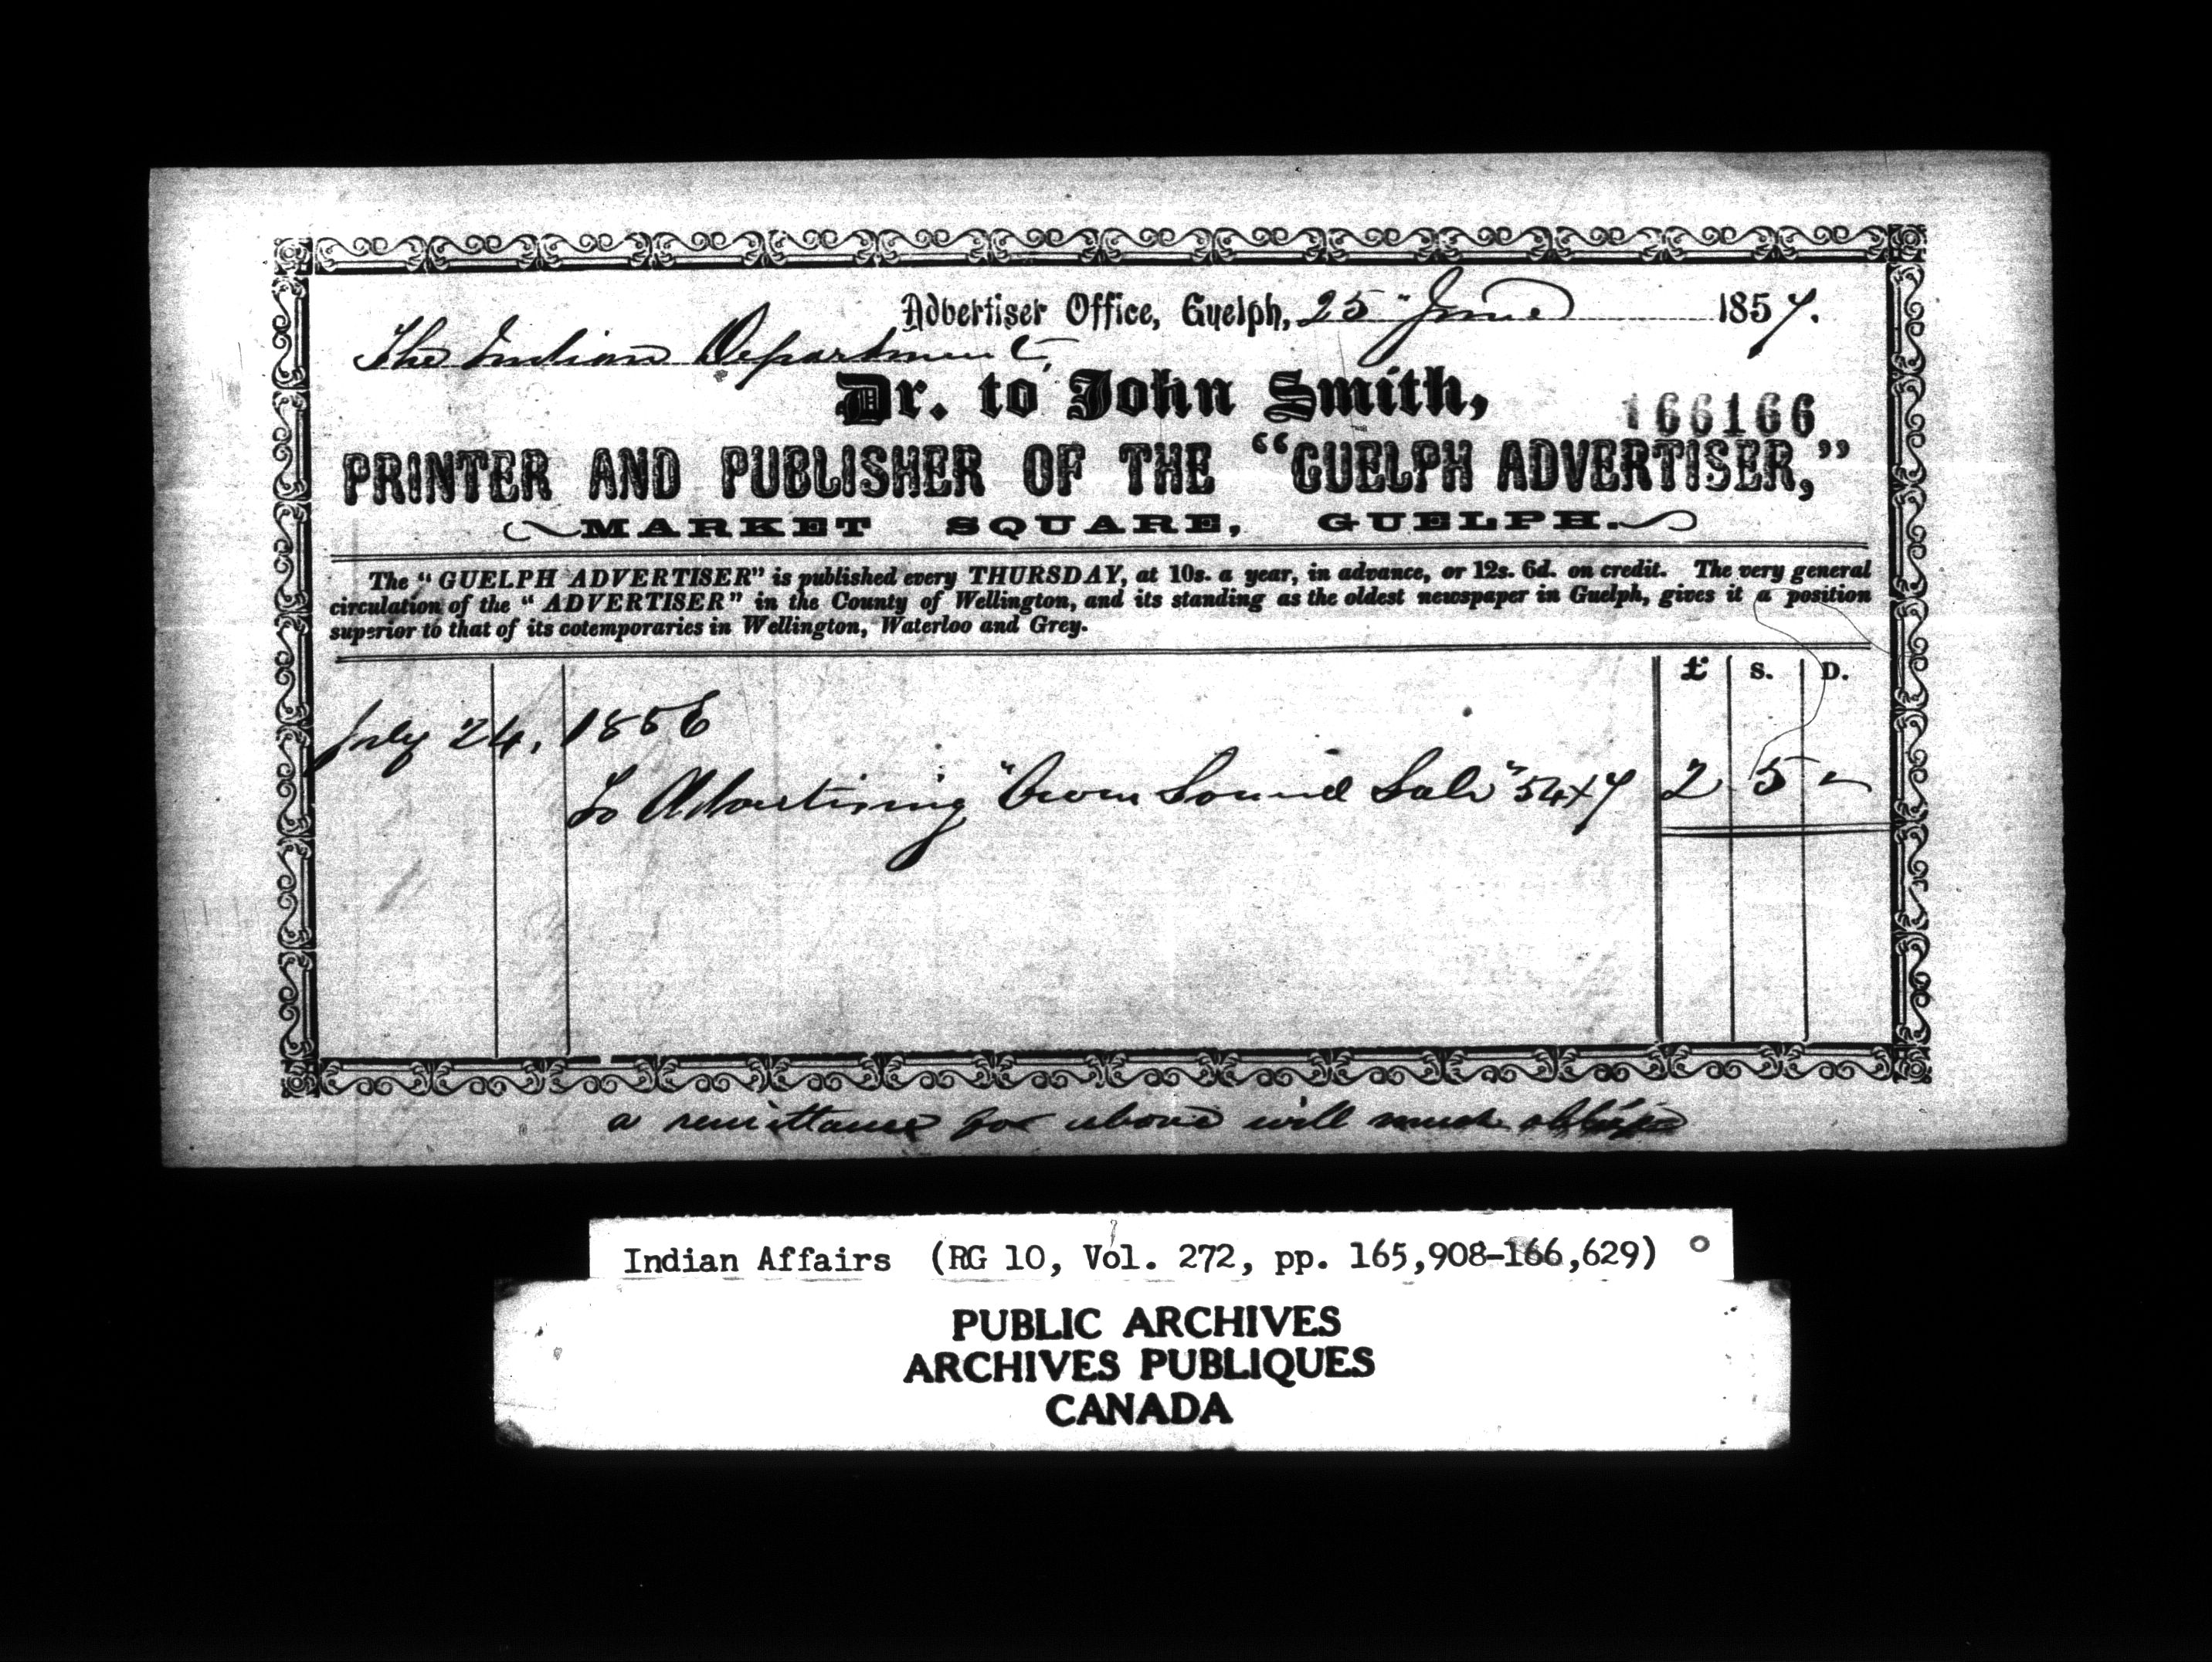 Advertiser Office, Guelph, 25" June 1857.
The Indian Department
Dr. to John Smith,
166166
PRINTER AND PUBLISHER OF THE "GUELPH ADVERTISER,"
MARKET SQUARE, GUELPH.
The "GUELPH ADVERTISER" is published every THURSDAY, at 10s. a year, in advance, or 12s. 6d. on credit. The very general
circulation of the "ADVERTISER" in the County of Wellington, and its standing as the oldest newspaper in Guelph, gives it a position
superior to that of its cotemporaries in Wellington, Waterloo and Grey.
£ S. D.
July 24, 1856
To Advertising "Owen Sound Sale" 54x7 2 5 -
a remittance for above will much oblige
Indian Affairs (RG 10, Vol. 272, pp. 165,908-166,629)
PUBLIC ARCHIVES
ARCHIVES PUBLIQUES
CANADA